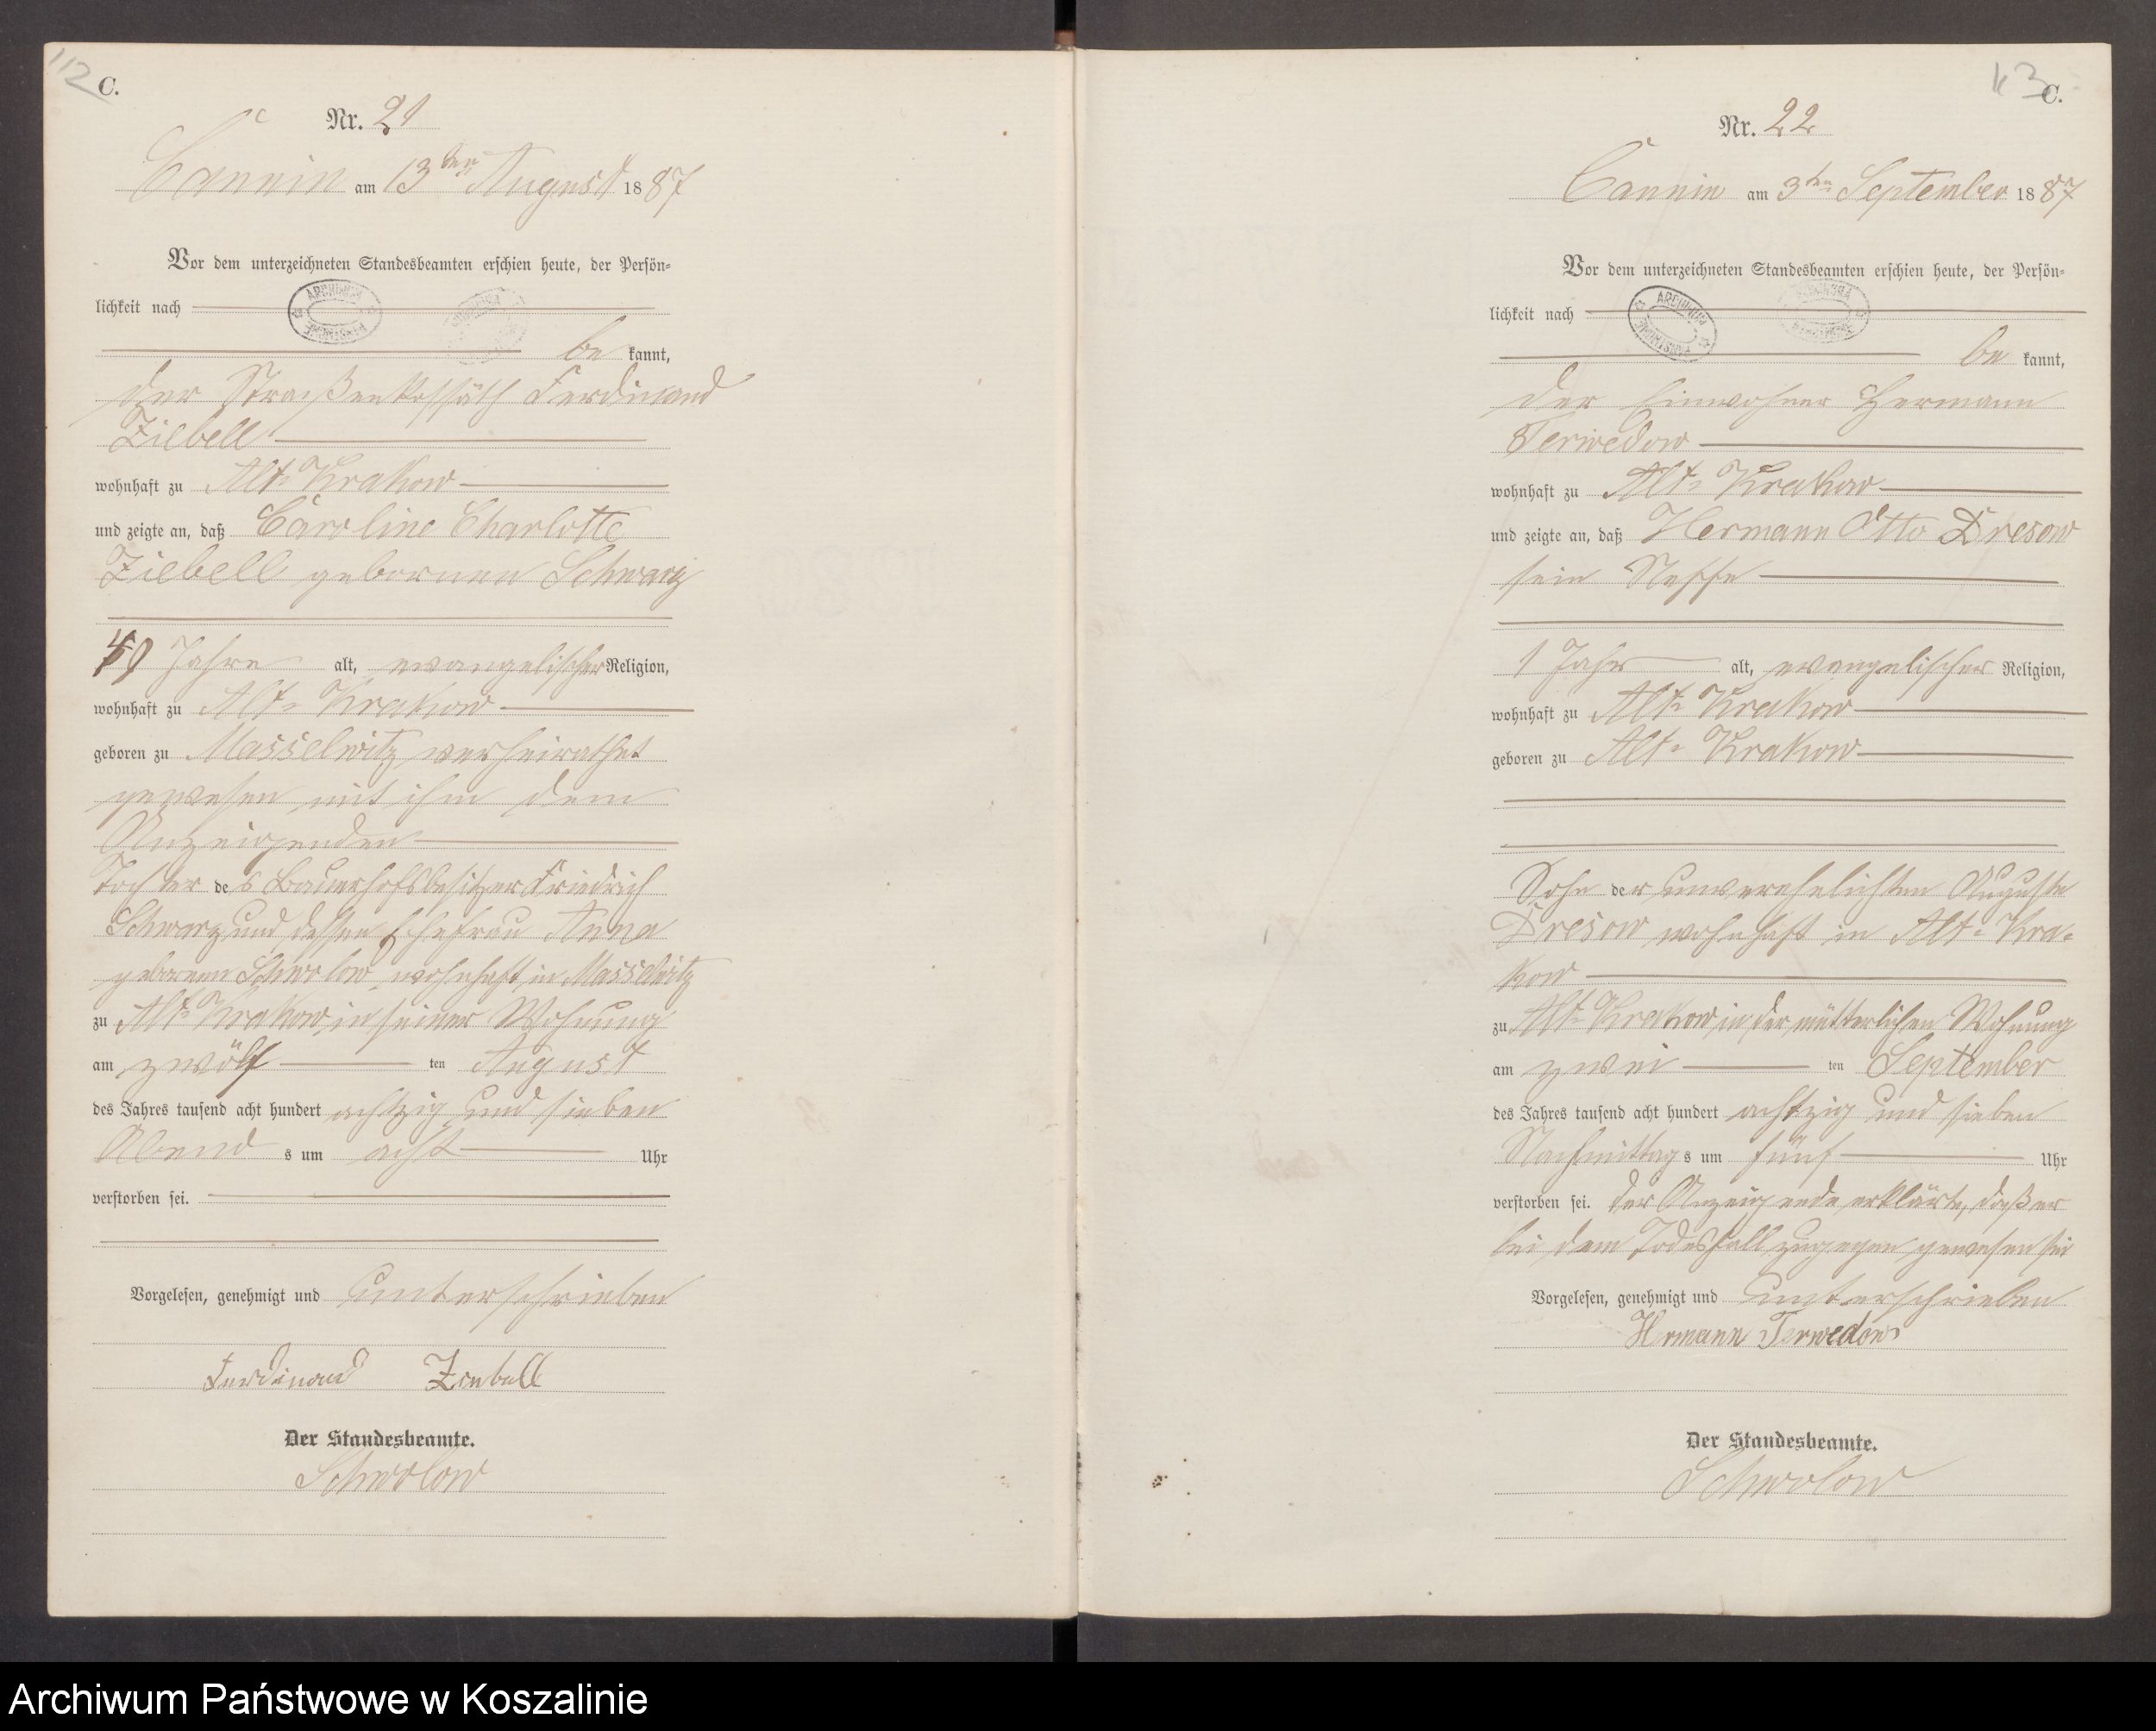 112
C.
Nr. 21
Cannin am 13ten August 1887
Vor dem unterzeichneten Standesbeamten erschien heute, der Persön-
lichkeit nach
be kannt,
der Straßenkossäth Ferdinand
Ziebell
wohnhaft zu Alt-Krakow
und zeigte an, daß Caroline Charlotte
Ziebell gebornen Schwarz
Jahre alt, evangelischer Religion,
wohnhaft zu Alt-Krakow
geboren zu Masselwitz verheirathet
gewesen mit ihm dem
Anzeigenden
Tochter des Bauerhofsbesitzer Friedrich
Schwarz und dessen Ehefrau Anna
gebornen Schwolow wohnhaft in Masselwitz
zu Alt-Krakow in seiner Wohnung
am zwölf ten August
des Jahres tausend acht hundert achtzig und sieben
Abend s um acht Uhr
verstorben sei.
Vorgelesen, genehmigt und unterschrieben
Ferdinand Ziebell
Der Standesbeamte.
Schwolow
113
C.
Nr. 22
Cannin am 3ten September 1887
Vor dem unterzeichneten Standesbeamten erschien heute, der Persön-
lichkeit nach
be kannt,
der Einwohner Hermann
Terwedow
wohnhaft zu Alt-Krakow
und zeigte an, daß Hermann Otto Dresow
sein Neffe
1 Jahr alt, evangelischer Religion,
wohnhaft zu Alt-Krakow
geboren zu Alt-Krakow
Sohn der unverehelichten Auguste
Dresow wohnhaft in Alt-Kra-
kow
zu Alt-Krakow in der mütterlichen Wohnung
am zwei ten September
des Jahres tausend acht hundert achtzig und sieben
Nachmittag s um fünf Uhr
verstorben sei. Der Anzeigende erklärte, daß er
bei dem Todesfall zugegen gewesen sei
Vorgelesen, genehmigt und unterschrieben
Hermann Terwedow
Der Standesbeamte.
Schwolow
Archiwum Państwowe w Koszalinie